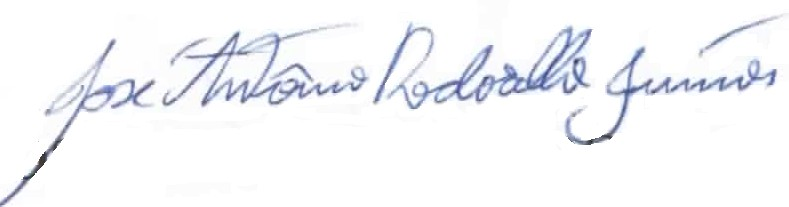 José Antônio Rodovalho Júnior